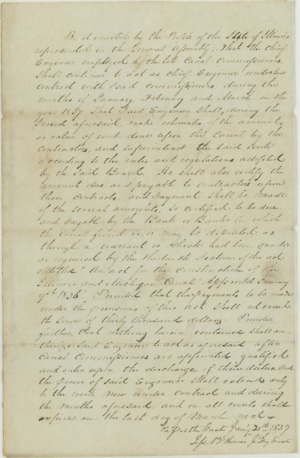 Be it enacted by the People of the State of Illinois
represented in the General Assembly, That the Chief
Engineer employed by the Canal Commissioners
Shall continue to act as Chief Engineer under his
contract with said commissioners, during the
months of January February and March in the
year 1837 That said Engineer shall, during the
Period aforesaid, make estimates of the amount
or value of work done upon the Canal by the
contractors, and superintend the said work
according to the rules and regulations adopted
by the said Board. He shall also certify the
amount due and payable to contractors upon
their contracts, and payment shall be made
of the several amounts, so certified to be due
and payable by the Bank or Banks in which
the Canal fund is, or may be deposited, as
though a warrant or check had been made
as required by the thirteenth section of the act
entitled "An act for the construction of the
Illinois and Michigan Canal" Approved January
9th 1836. Provided that the payments to be made
under the provisions of this act shall not exceed
the sum of thirty thousand dollars Provided
further, that nothing herein contained shall au-
thorize said Engineer to act as aforesaid after
Canal Commissioners are appointed qualified
and enter upon the discharge of their duties and
the power of said Engineer shall extend only
to the work now under contract and during
the months aforesaid, and in all events shall
expire on the last day of March next
Passed the Senate Jany 20th 1837